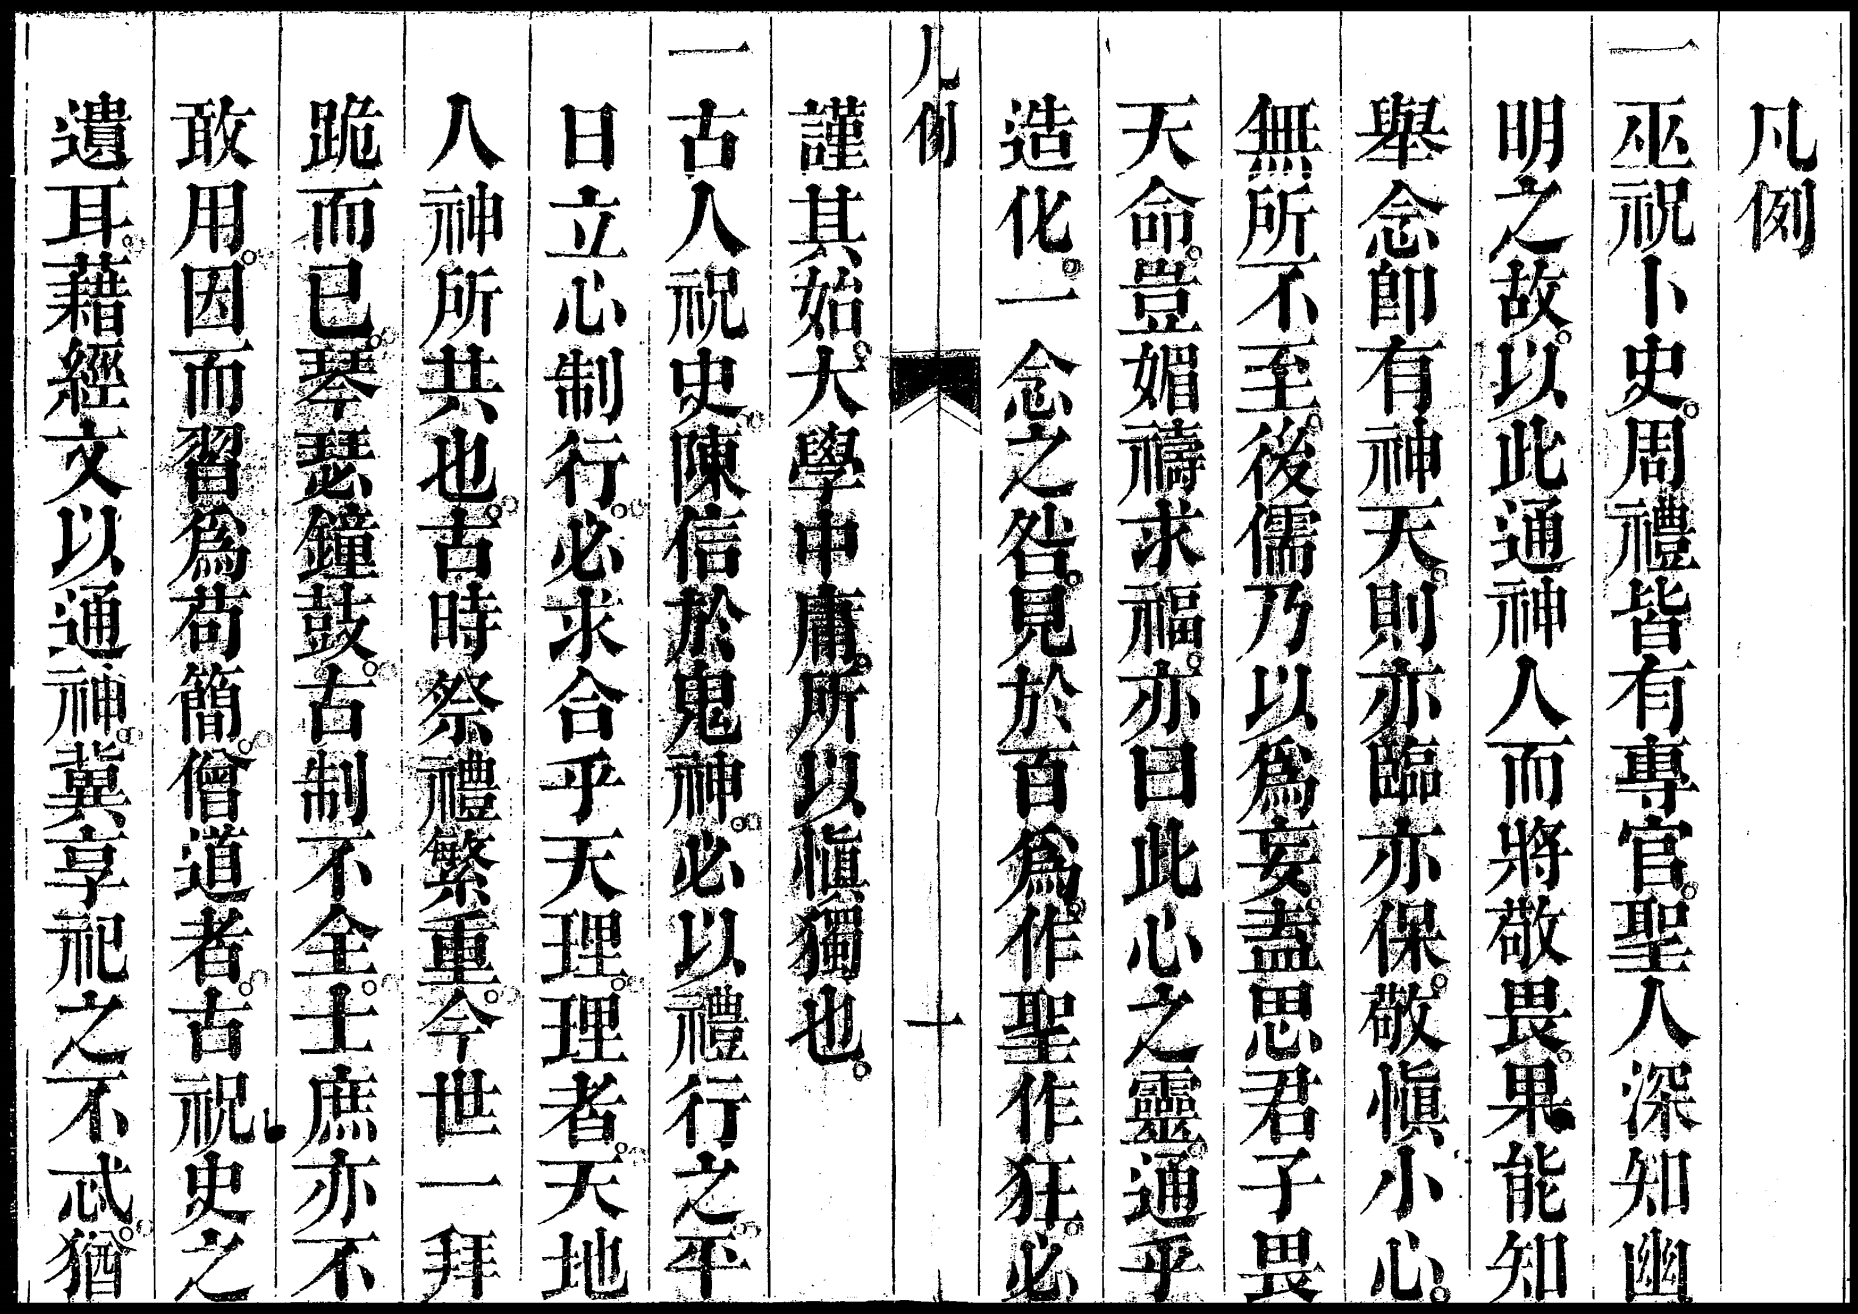 凡例
一巫祝卜史。周禮皆有專官。聖人深知幽
明之故。以此通神人而將敬畏。果能知
舉念卽有神天。則亦臨亦保。敬愼小心。
無所不至。後儒乃以爲妄。盡思君子畏
天命。豈媚禱求福。亦曰此心之靈。通乎
造化。一念之咎。見於百爲。作聖作狂。必
凡例
十
謹其始。大學中庸。所以愼獨也。
一古人祝史。陳信於鬼神。必以禮行之。平
日立心制行。必求合乎天理。理者。天地
人神所共也。古時祭禮繁重。今世一拜
跪而已。琴瑟鐘鼓。古制不全。士庶亦不
敢用。因而習爲苟簡。僧道者。古祝史之
遺耳。藉經文以通神。冀享祀之不忒。猶